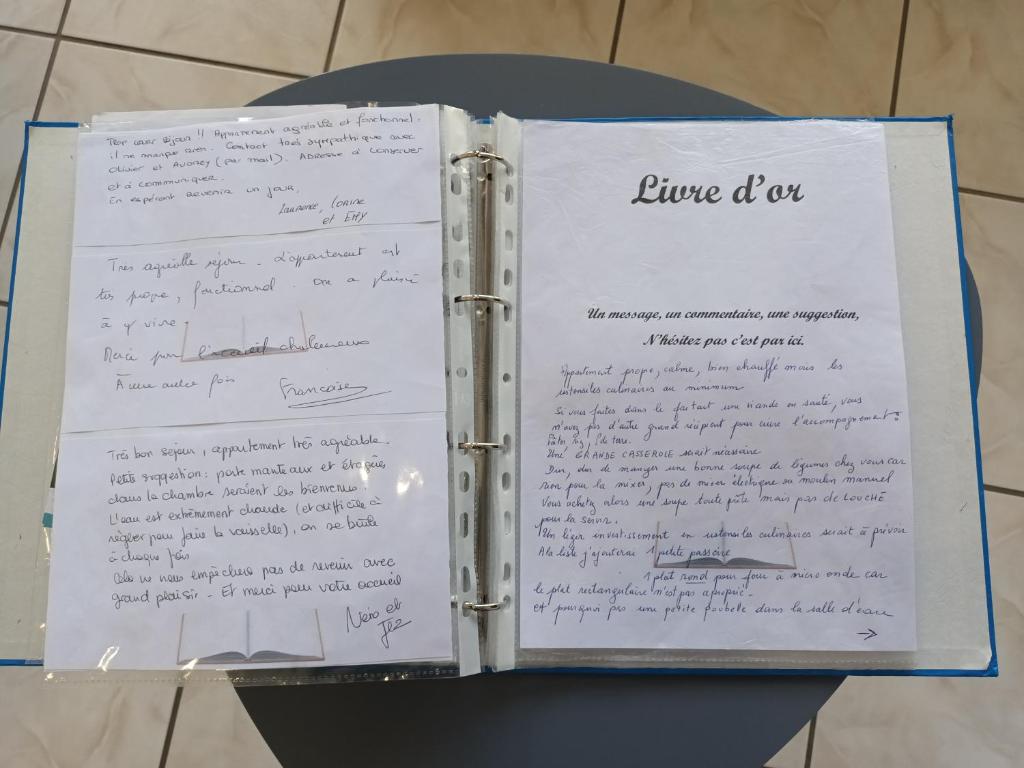 Très bon séjour !! Appartement agréable et fonctionnel.
il ne manque rien. Contact très sympathique avec
Olivier et Audrey (par mail). Adresse à conserver
et à communiquer.
En espérant revenir un jour,
Laurence, Corine
et Emy
Très agréable séjour. L'appartement est
très propre, fonctionnel. On a plaisir
à y vivre.
Merci pour l'accueil chaleureux
À une autre fois
Francoise
Très bon sejour, appartement très agréable.
Petite suggestion : porte manteaux et étagères
dans la chambre seraient les bienvenus.
L'eau est extrêmement chaude (et difficile à
régler pour faire la vaisselle), on se brûle
à chaque fois
Cela ne nous empêchera pas de revenir avec
grand plaisir - Et merci pour votre accueil
Livre d'or
Un message, un commentaire, une suggestion,
N'hésitez pas c'est par ici.
Appartement propre, calme, bien chauffé mais les
ustensiles culinaires au minimum
Si vous faites dans le faitout une viande en sauté, vous
n'avez pas d'autre grand récipient pour cuire l'accompagnement :
Une GRANDE CASSEROLE serait nécessaire
Dur, dur de manger une bonne soupe de légumes chez vous car
rien pour la mixer, pas de mixer électrique ou moulin manuel
Vous achetez alors une soupe toute prête mais pas de LOUCHE
pour la servir.
Un léger investissement en ustensiles culinaires serait à prévoir
A la liste j'ajouterai 1 petite passoire
1 plat rond pour four à micro onde car
le plat rectangulaire n'est pas approprié.
et pourquoi pas une petite poubelle dans la salle d'eau
→